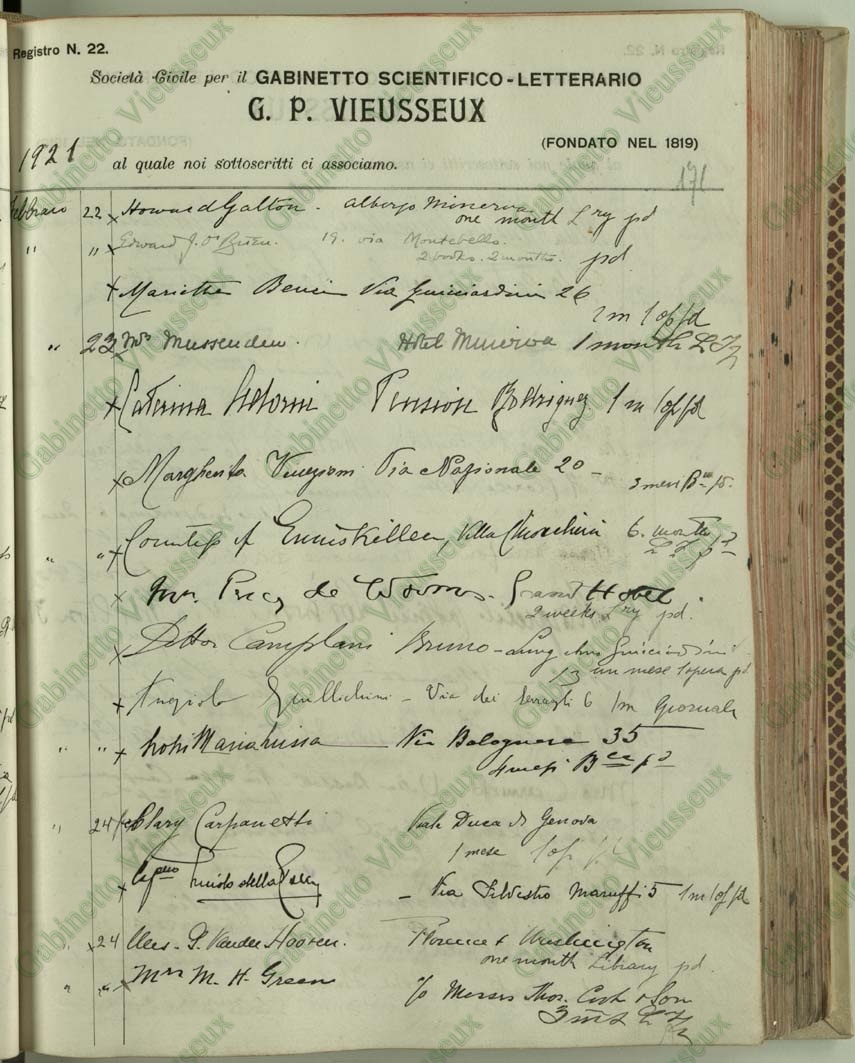 Registro N. 22.
Società Civile per il GABINETTO SCIENTIFICO-LETTERARIO
G. P. VIEUSSEUX
(FONDATO NEL 1819)
1921
al quale noi sottoscritti ci associamo.
171
Febbraio 22 x Howard Galton. Albergo Minerva
one month Lry pd
" " x Edward J. O'Brien. 19. via Montebello.
2 books. 2 months. pd.
x Marietta Via Guicciardini 26
1 m 1 op pd
" 23 x Mrs Mussenden. Hotel Minerva 1 month
x Caterina Pension Rodriguez 1 m 1 op pd
x Margherita Via Nazionale 20 -
3 mesi
" " x Countess of Enniskillen, Villa 6. months
x Mrs. Percy de Worms. Grand Hotel.
2 weeks Lry pd.
x Dottor Camplani Bruno - Lung'Arno Guicciardini
13 un mese 1 opera pd
x Angiolo - Via dei Serragli 6 1m Giornali
" " x Maria Luisa Via Bolognese 35
4 mesi
" 24 Clary Carpanetti Viale Duca di Genova
1 mese 1 op
x Guido della - Via Silvestro Maruffi 5 1m 1 op pd
" x 24 P. Vander Hooven. Florence & Washington
one month Library pd.
" " x Mrs M. H. Green
c/o Messrs Thos. Cook & Son